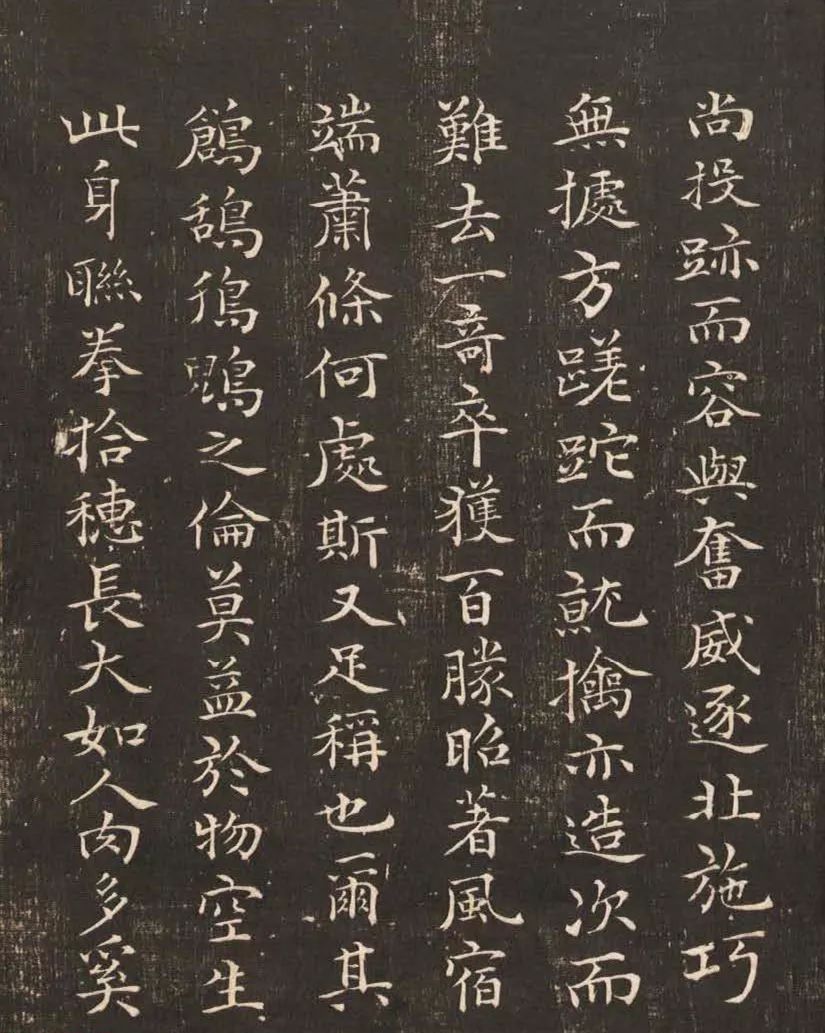 尚投跡而容與奮威逐北施巧
無據方蹉跎而就擒亦造次而
難去一奇卒獲百勝昭著風宿
端蕭條何處斯又足稱也爾其
鶬鴰鳵鶂之倫莫益於物空生
此身聯拳拾穗長大如人肉多奚